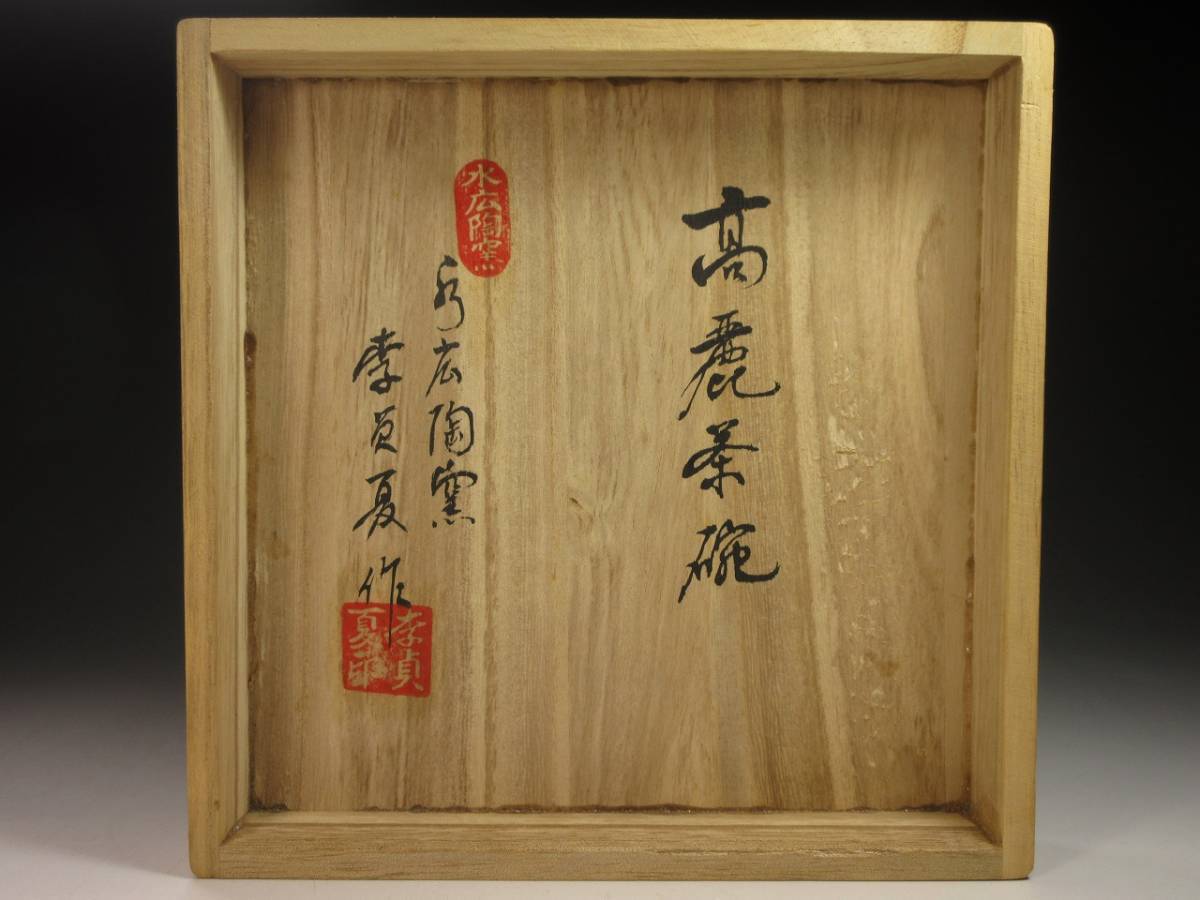 高麗茶碗
水広陶窯
水広陶窯
李貞夏作
李貞夏印